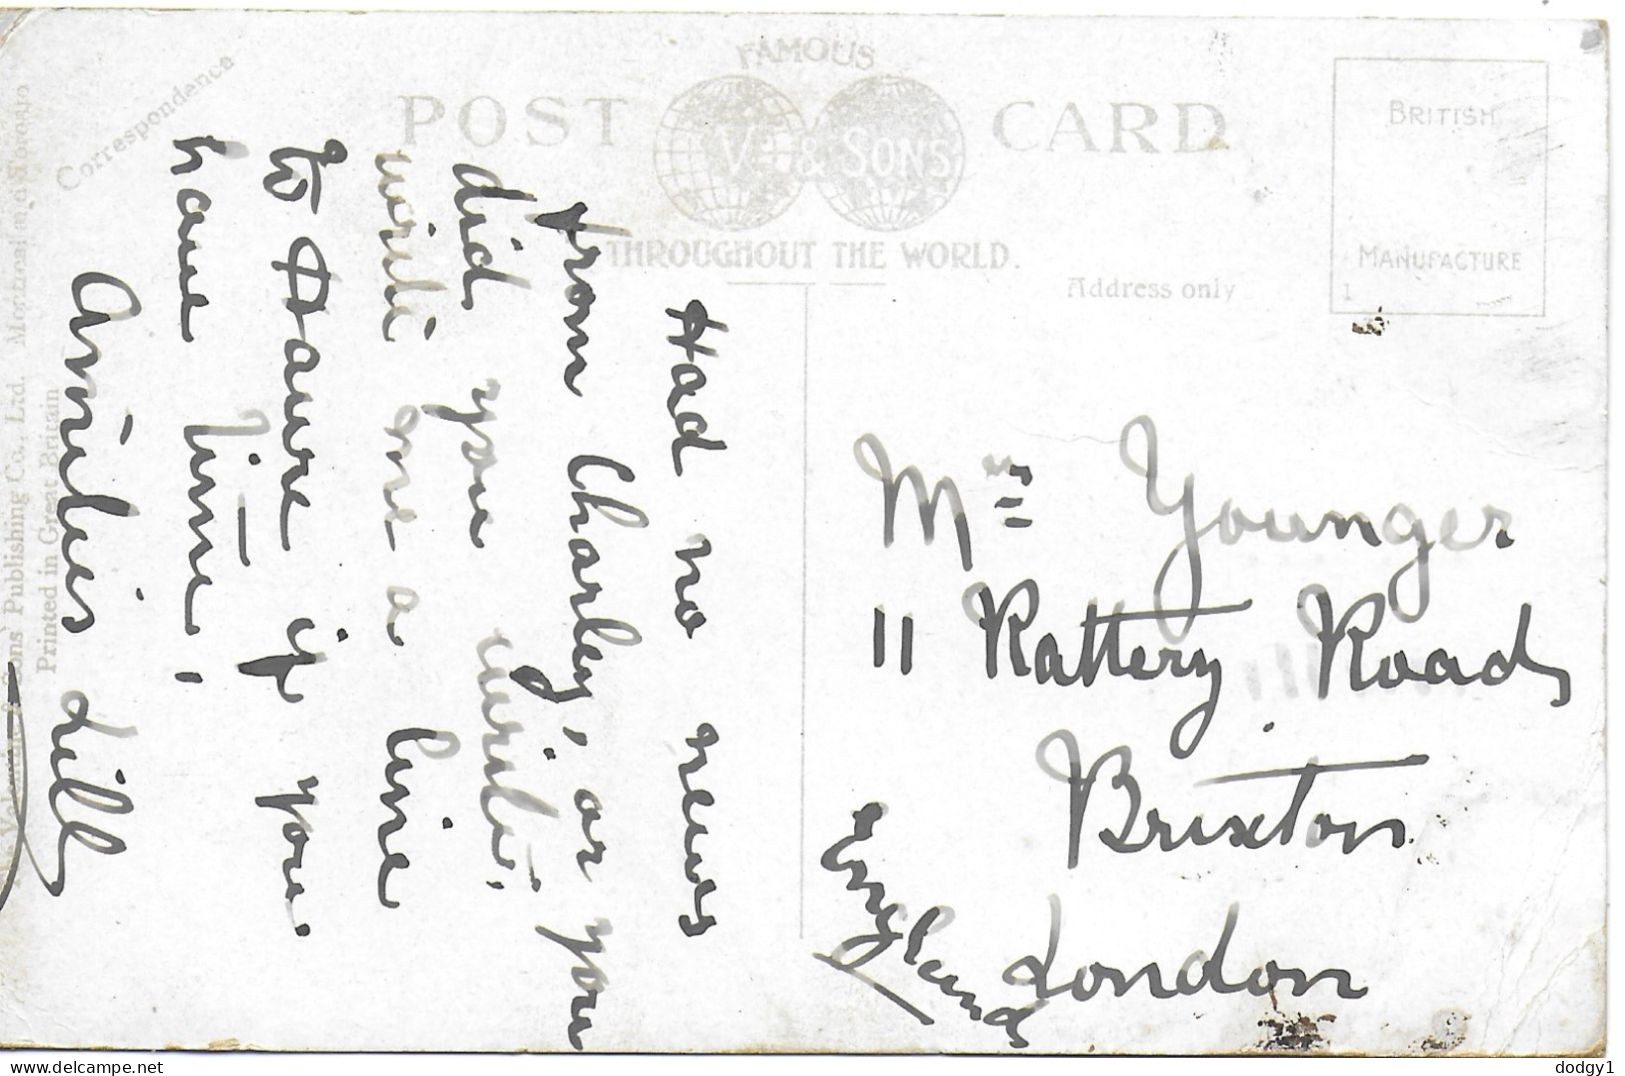 FAMOUS
POST CARD
V. & SONS
THROUGHOUT THE WORLD.
Correspondence
Address only
BRITISH
MANUFACTURE
1
Sons Publishing Co., Ltd. Montreal and Toronto
Printed in Great Britain
Had no news
from Charley, or you
did you write,
write me a line
to Daure if you
have time,
Amities Lill
Mrs Younger
11 Rattery Road
Brixton
London
England
delcampe.net
dodgy1